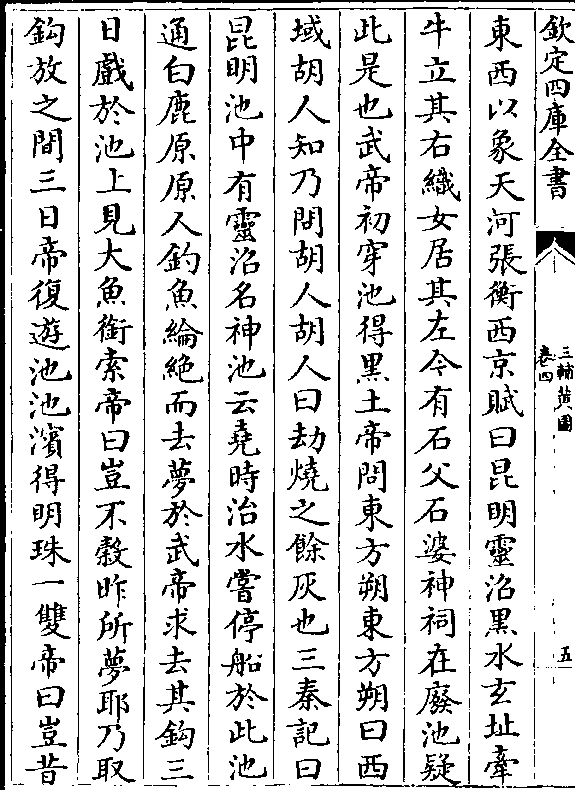 欽定四庫全書
三輔黄圖
卷四
五
東西以象天河張衡西京賦曰昆明靈沼黑水玄址牽
牛立其右織女居其左今有石父石婆神祠在廢池疑
此是也武帝初穿池得黑土帝問東方朔東方朔曰西
域胡人知乃問胡人胡人曰劫燒之餘灰也三秦記曰
昆明池中有靈沼名神池云堯時治水嘗停船於此池
通白鹿原原人釣魚綸絶而去夢於武帝求去其鈎三
日戲於池上見大魚銜索帝曰豈不穀昨所夢耶乃取
鈎放之間三日帝復遊池池濱得明珠一雙帝曰豈昔